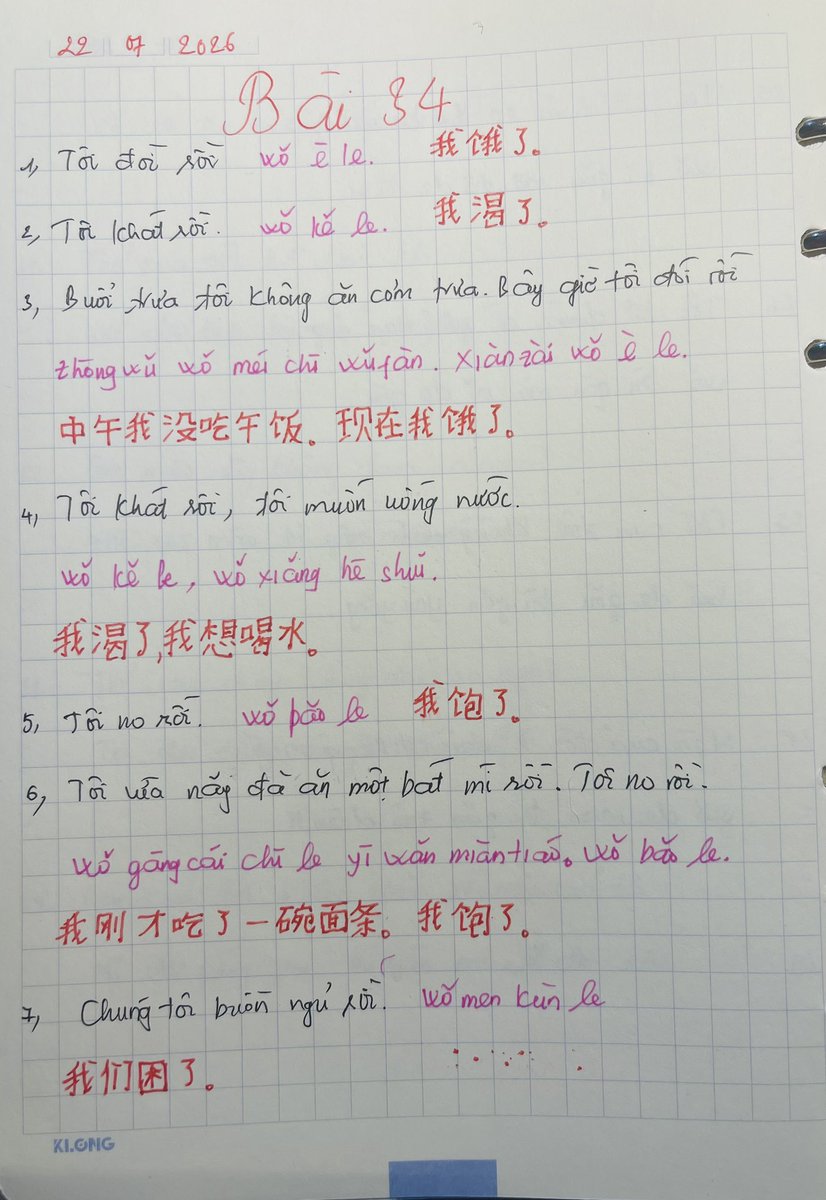 22 07 2026
Bài 34
1, Tôi đói rồi wǒ ē le. 我饿了。
2, Tôi khát rồi. wǒ kě le. 我渴了。
3, Buổi trưa tôi không ăn cơm trưa. Bây giờ tôi đói rồi
zhōngwǔ wǒ méi chī wǔfàn. xiànzài wǒ è le.
中午我没吃午饭。现在我饿了。
4, Tôi khát rồi, tôi muốn uống nước.
wǒ kě le, wǒ xiǎng hē shuǐ.
我渴了,我想喝水。
5, Tôi no rồi. wǒ bǎo le 我饱了。
6, Tôi vừa nãy đã ăn một bát mì rồi. Tôi no rồi.
wǒ gāngcái chī le yī wǎn miàntiáo。wǒ bǎo le.
我刚才吃了一碗面条。我饱了。
7, Chúng tôi buồn ngủ rồi. wǒmen kùn le
我们困了。
KLONG